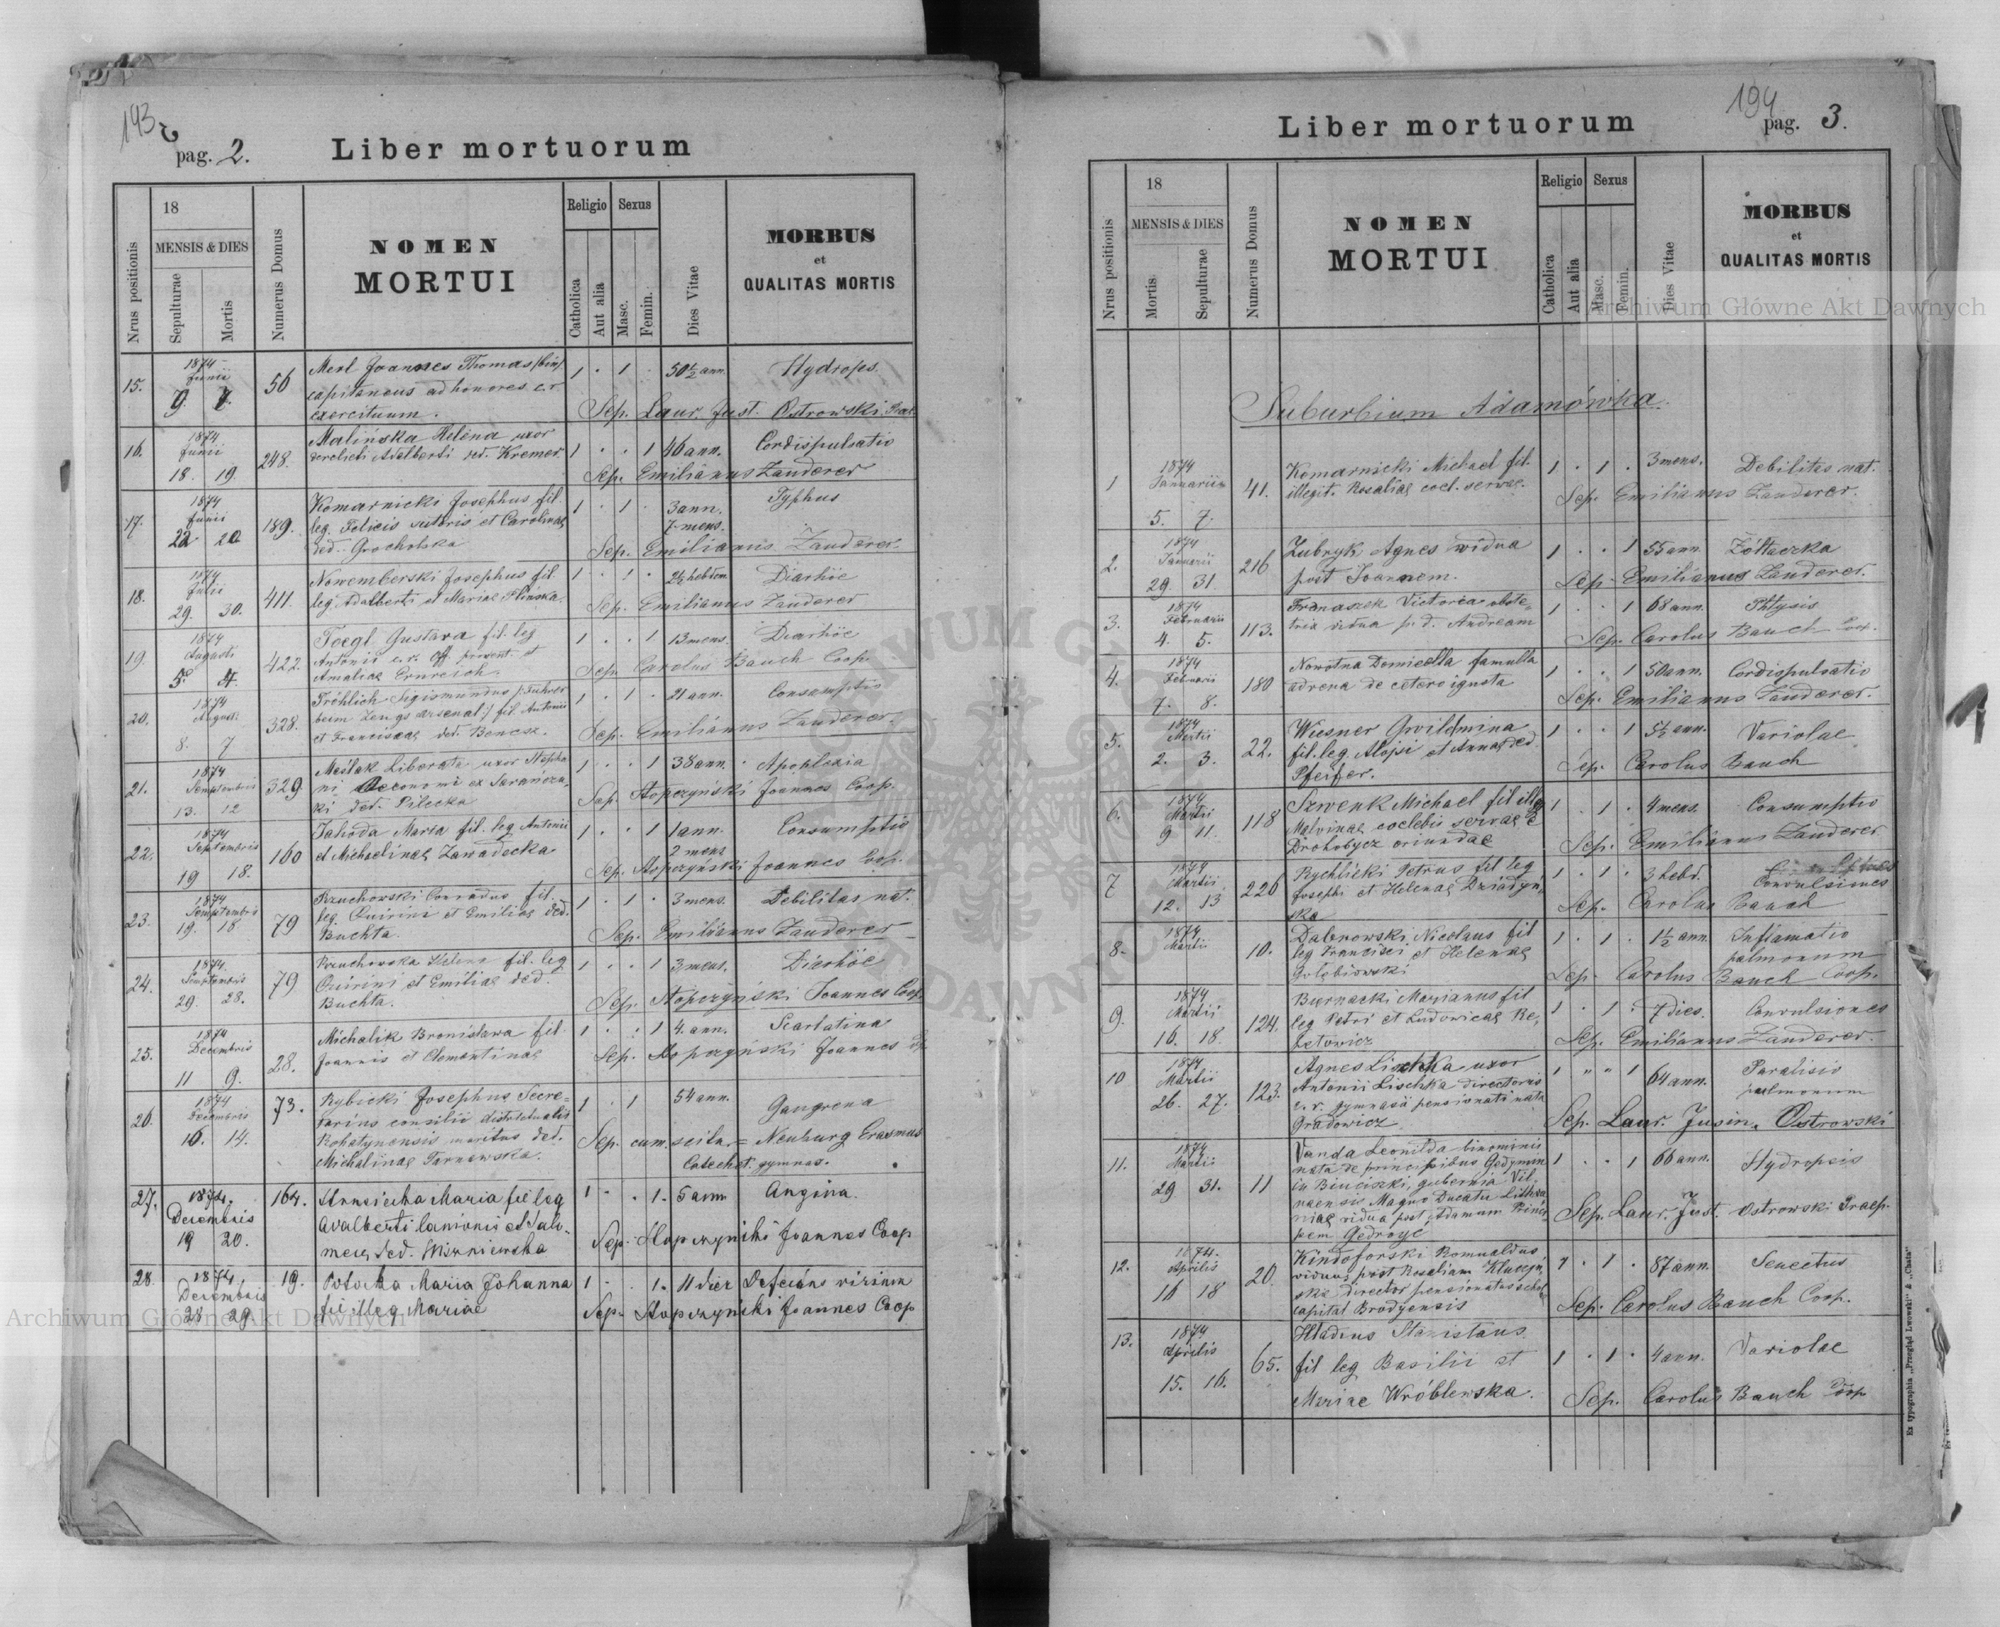 193
pag. 2.
Liber mortuorum
Nrus positionis
18
MENSIS & DIES
Sepulturae
Mortis
Numerus Domus
NOMEN
MORTUI
Religio
Catholica
Aut alia
Sexus
Masc.
Femin.
Dies Vitae
MORBUS
et
QUALITAS MORTIS
15. 1874 Junii 9. 7. 56
Merl Joannes Thomas
capitaneus ad honores c. r.
exercituum.
1 · 1 · 50½ ann. Hydrops.
Sep. Laur. Just. Ostrowski
16. 1874 Junii 18. 19. 248.
Malińska Helena uxor
derelicti Adalberti ded. Kremer
1 · · 1 46 ann. Cordispulsatio
Sep. Emilianus Zanderer
17. 1874 Junii 22 20 189.
Komarnicki Josephus fil.
leg. Felicis sutoris et Carolinae
ded. Grocholska
1 · 1 · 3 ann. 7 mens. Typhus
Sep. Emilianus Zanderer.
18. 1874 Julii 29. 30. 411.
Nowemberski Josephus fil.
leg. Adalberti et Mariae Plinska.
1 · 1 · 2½ hebdom. Diarhöe
Sep. Emilianus Zanderer
19. 1874 Augusti 5. 4. 422
Toegl Gustava fil. leg
Antonii c. r. Off et
Amaliae Ernreich
1 · · 1 13 mens. Diarhöe
Sep. Carolus Bauch Coop.
20. 1874 Augusti 8. 7 328.
Fröhlich Sigismundus Führer
beim Zeugs arsenal fil. Antonii
et Franciscae ded. Bencsz.
1 · 1 · 21 ann. Consumptio
Sep. Emilianus Zanderer.
21. 1874 Semptembris 13. 12 329
Meślak Liberata uxor Stepha
ni Oeconomi ex
ki ded. Pilecka
1 · · 1 38 ann. Apoplexia
Sep. Stopczyński Joannes Coop.
22. 1874 Septembris 19 18. 160
Jahoda Maria fil. leg Antonii
et Michaelinae Zawadecka
1 · · 1 1 ann. 2 mens Consumptio
Sep. Stopczyński Joannes Coop.
23. 1874 Semptembris 19. 18 79
Rzuchowski Conradus fil.
leg. Quirini et Emiliae ded.
Buchta.
1 · 1 · 3 mens. Debilitas nat.
Sep. Emilianus Zanderer
24. 1874 Semptembris 29. 28. 79
Rzuchowska Helena fil. leg
Quirini et Emiliae ded.
Buchta.
1 · · 1 3 mens. Diarhöe
Sep. Stopczyński Joannes Coop
25. 1874 Decembris 11 9. 28.
Michalik Bronislava fil.
Joannis et Clementinae
1 · · 1 4. ann. Scarlatina
Sep. Stopczyński Joannes
26. 1874 Decembris 16. 14. 73.
Rybicki Josephus Secre=
tarius consilii districtualis
Rohatynensis maritus ded.
Michalinae Tarnawska.
1 · 1 54 ann. Gangrena
Sep. cum. scitu = Neuburg Erasmus
Catechet. gymnas.
27. 1874. Decembris 19 20. 164.
Maria fil leg
Avalberti lanionis et Salo-
meae ded.
1 · · 1. 5 ann Angina.
Sep. Stopczyński Joannes Coop
28. 1874 Decembris 28 29 19.
Potocka Maria Johanna
fil illeg Mariae
1 · · 1. 11 dier Defeciens virium
Sep. Stopczyński Joannes Coop
194
pag. 3.
Liber mortuorum
Nrus positionis
18
MENSIS & DIES
Mortis
Sepulturae
Numerus Domus
NOMEN
MORTUI
Religio
Catholica
Aut alia
Sexus
Masc.
Femin.
Dies Vitae
MORBUS
et
QUALITAS MORTIS
Suburbium Adamówka.
1 1874 Januarii 5. 7. 41.
Komarnicki Michael fil.
illegit. Rosaliae coel. servae.
1 · 1 · 3 mens. Debilitas nat.
Sep. Emilianus Zanderer.
2. 1874 Januarii 29 31 216
Zubryk Agnes vidua
post Joannem.
1 · · 1 55 ann. Żółtaczka
Sep. Emilianus Zanderer.
3. 1874 Februarii 4. 5. 113.
Franaszek Victoria obste=
trix vidua p. d. Andream
1 · · 1 68 ann. Phtysis
Sep. Carolus Bauch Coop.
4. 1874 Februarii 7. 8. 180
Nowotna Domicella famulla
adrena de cetero ignota
1 · · 1 50 ann. Cordispulsatio
Sep. Emilianus Zanderer.
5. 1874 Martii 2. 3. 22.
Wiesner Gwildmina
fil. leg. Alojsi et Annae ded
Pfeifer.
1 · · 1 5½ ann. Variolae
Sep. Carolus Bauch
6. 1874 Martii 9 11. 118
Szwenk Michael fil illeg
Malvinae coelebis servae e
Drohobycz oriundae
1 · 1 · 4 mens. Consumptio
Sep. Emilianus Zanderer
7 1874 Martii 12. 13 226
Rychlicki Petrus fil leg
Josephi et Helenae Dziadyń,
ska
1 · 1 · 3 hebd. Convulsiones
Sep. Carolus Bauch
8. 1874 Martii 10.
Dabrowski Nicolaus fil
leg Francisci et Helenae
Gołębiowski
1 · 1 · 1½ ann. Inflamatio
pulmonum
Sep. Carolus Bauch Coop.
9 1874 Martii 16. 18. 124.
Biernacki Marianus fil
leg Petri et Ludovicae Re,
letowicz
1 · 1 · 7 dies. Convulsiones
Sep. Emilianus Zanderer.
10 1874 Martii 26. 27. 123.
Agnes Lischka uxor
Antonii Lischka directoris
c. r. gymnasii pensionati nata
Gradowicz
1 " " 1 64 ann. Paralisis
pulmonum
Sep. Laur. Jusin. Ostrowski
11. 1874 Martii 29 31. 11
Vanda Leonilda binominis
nata de principibus Gedymin
in gubernia Vil,
naensis Magno Ducatu Lithva
niae vidua post Adamum Prince,
pem Gedroyć
1 · · 1 66 ann. Hydropsis
Sep. Laur. Just. Ostrowski Praep.
12. 1874. Aprilis 16 18 20.
Kindoforski Romualdus
viduus post Rosaliam Kluczyń,
ska director pensionatus schol
capital Brodyensis
1 · 1 · 87 ann. Senectus
Sep. Carolus Bauch Coop.
13. 1874 Aprilis 15. 16. 65.
Hladius Stanislaus
fil leg Basilii et
Mariae Wróblewska.
1 · 1 · 4 ann. Variolae
Sep. Carolus Bauch Coop
Ex typographia „Przegląd Lwowski" & „Chata"
Archiwum Główne Akt Dawnych
Archiwum Główne Akt Dawnych